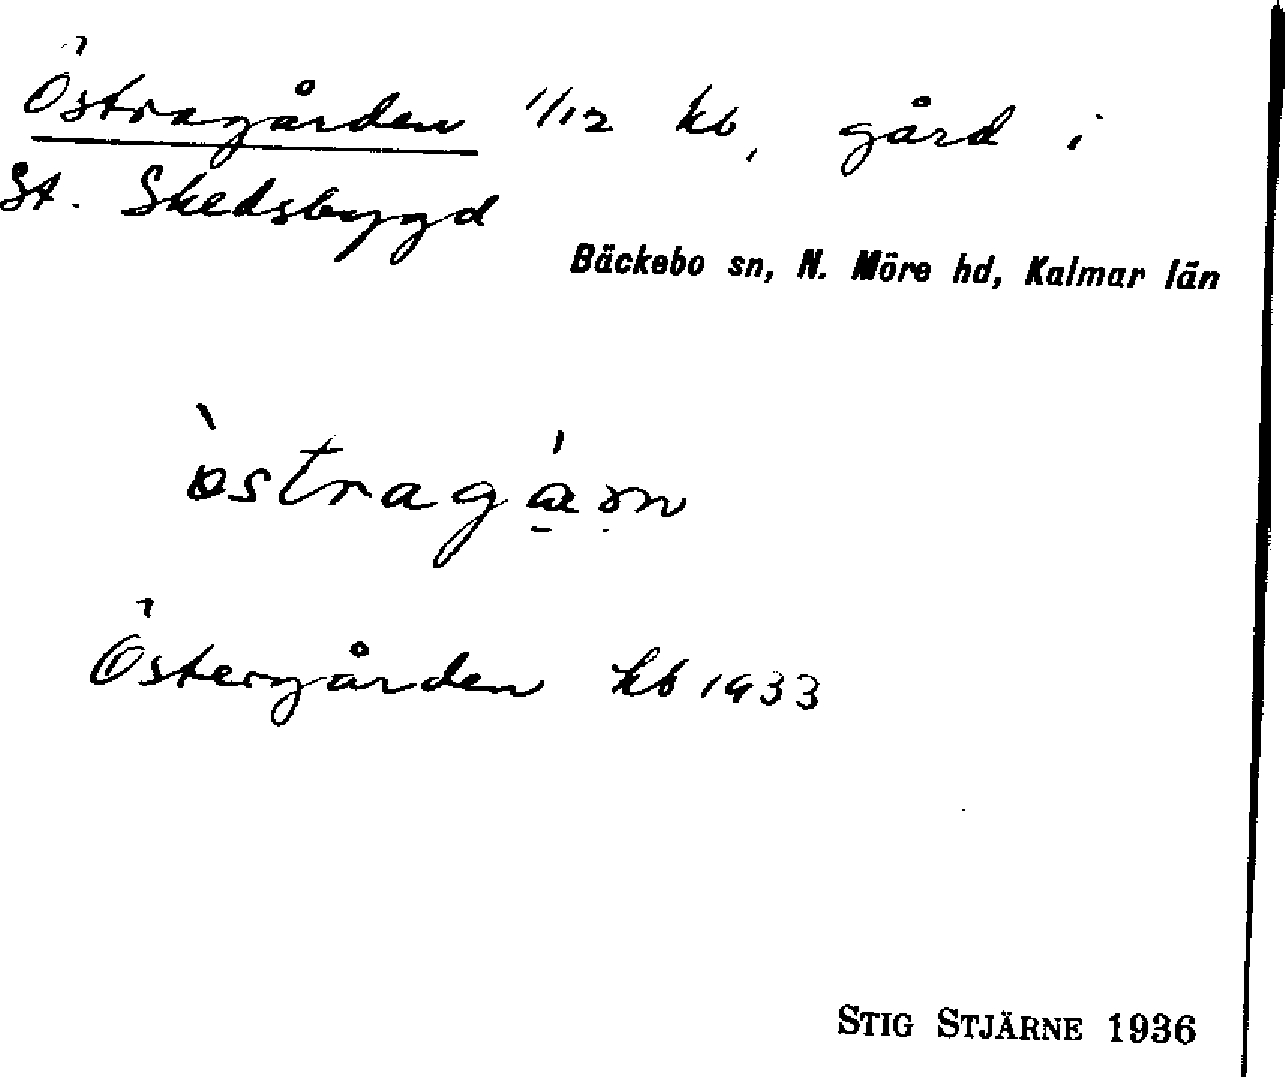 Östragården 1/12 kb, gård i
St. Skedsbygd
Bäckebo sn, N. Möre hd, Kalmar län
östragån
Östergården kb 1933
STIG STJÄRNE 1936